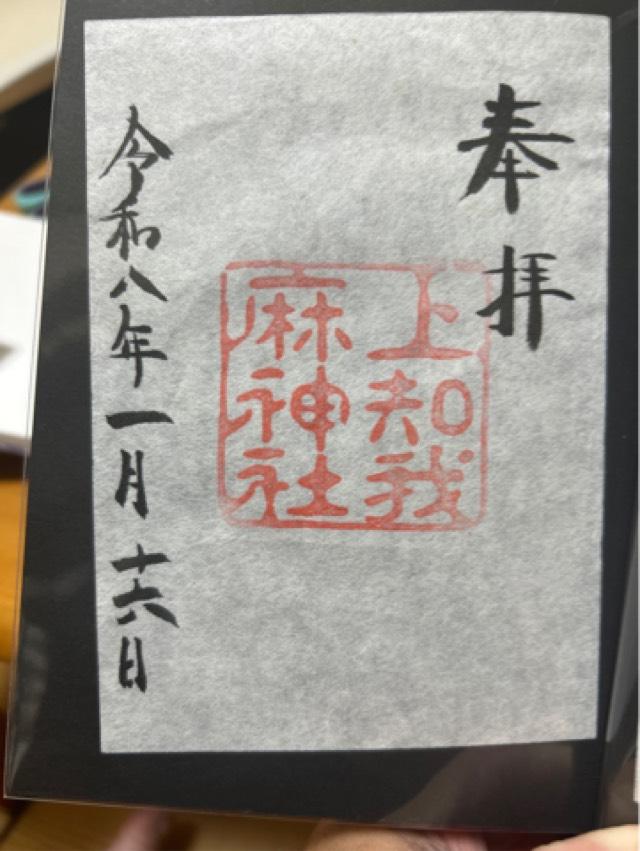 奉拝
上知我
麻神社
令和八年一月十六日